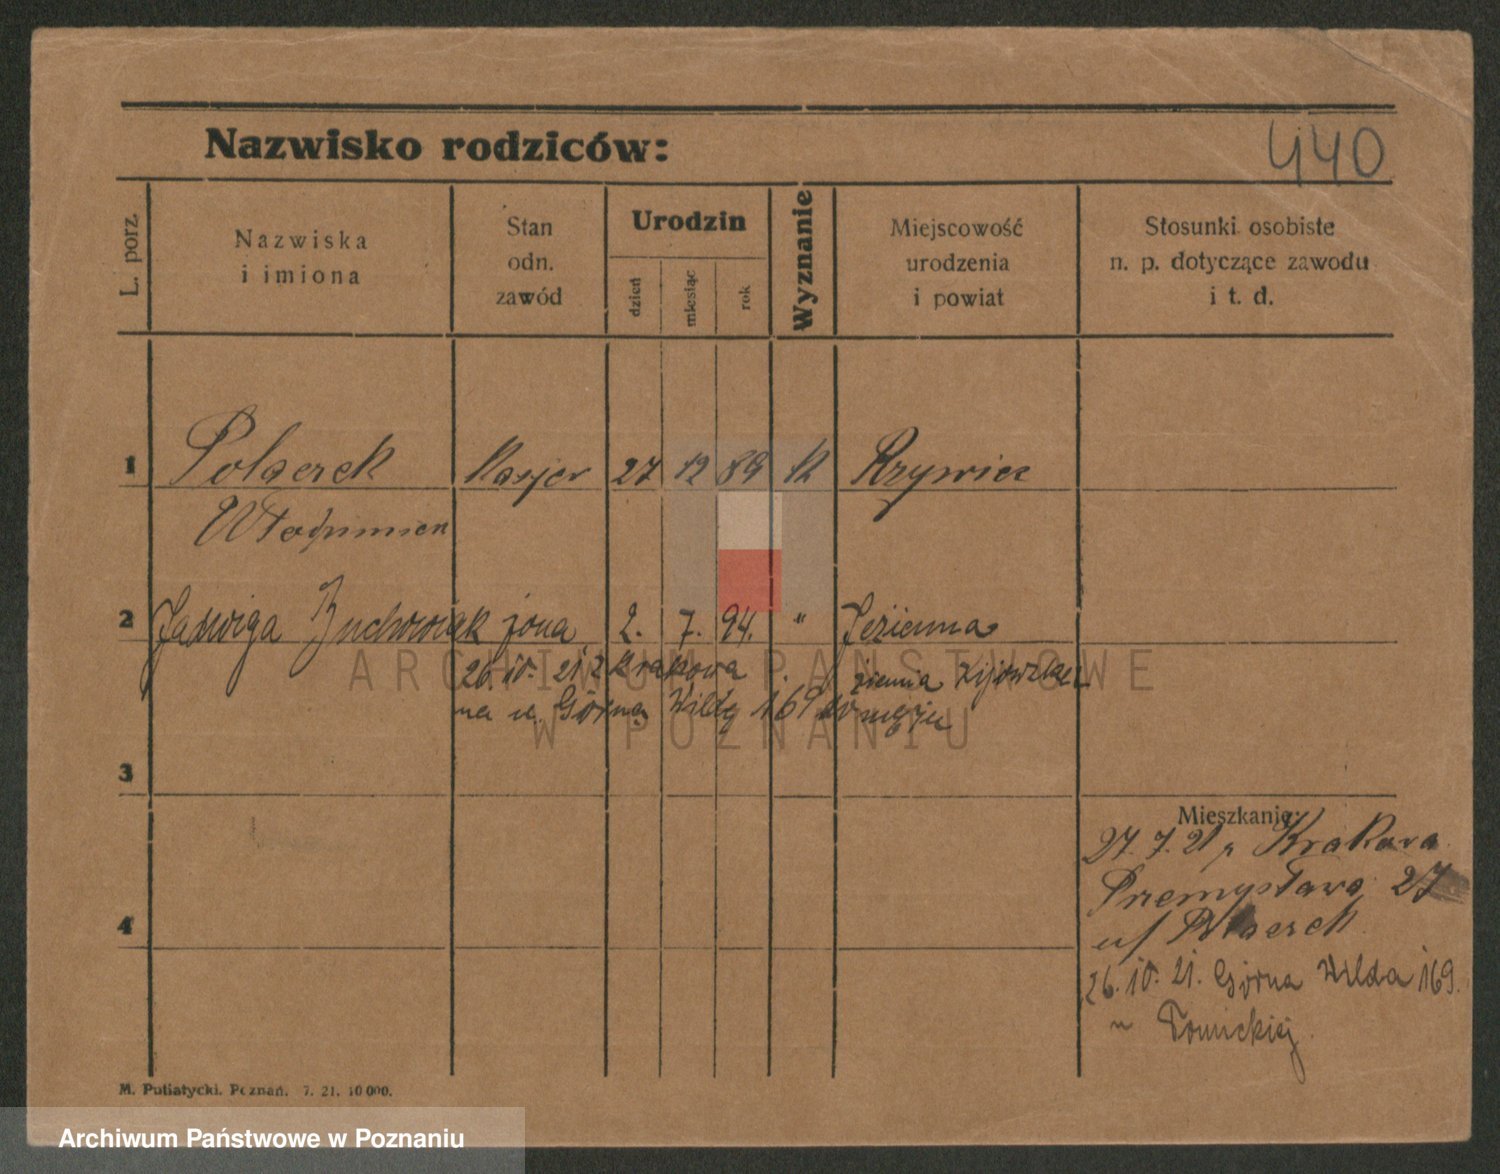 Nazwisko rodziców:
440
L. porz.
Nazwiska
i imiona
Stan
odn.
zawód
Urodzin
dzień
miesiąc
rok
Wyznanie
Miejscowość
urodzenia
i powiat
Stosunki osobiste
n. p. dotyczące zawodu
i t. d.
1 27 12 89 k
2 Jadwiga żona 2. 7. 94. "
26. 10. 21. z Krakowa
ziemia Kijowska
na u. Górną Wildę 169 do męża
ARCHIWUM PAŃSTWOWE
W POZNANIU
3
Mieszkanie:
27. 7. 21 Krakowa
Przemysłowa 27
u/
4
26. 10. 21. Górna Wilda 169.
u Tomickiej
M. Putiatycki. Poznań. 7. 21. 10 000.
Archiwum Państwowe w Poznaniu